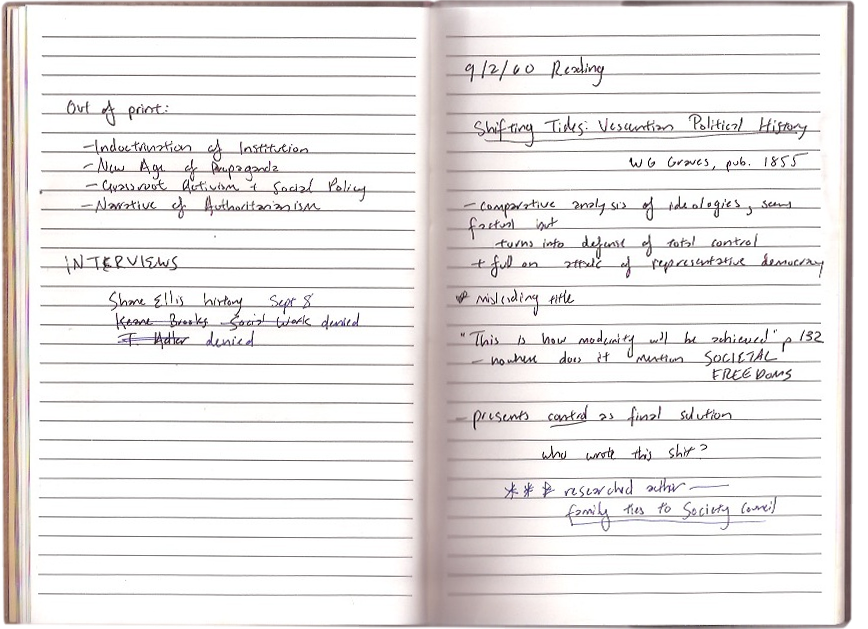 Out of print:
- Indoctrination of Institution
- New Age of Propaganda
- Grassroot Activism + Social Policy
- Narrative of Authoritarianism
INTERVIEWS
Shane Ellis history Sept 8
Keane Brooks Social Work denied
T. Adler denied
9/2/60 Reading
Shifting Tides: Vescentian Political History
WG Graves, pub. 1855
- comparative analysis of ideologies, seems
factual but
turns into defense of total control
+ full on attack of representative democracy
* misleading title
"This is how modernity will be achieved" p 132
- nowhere does it mention SOCIETAL
FREEDOMS
- presents control as final solution
who wrote this shit?
* * * researched author —
family ties to Society Council